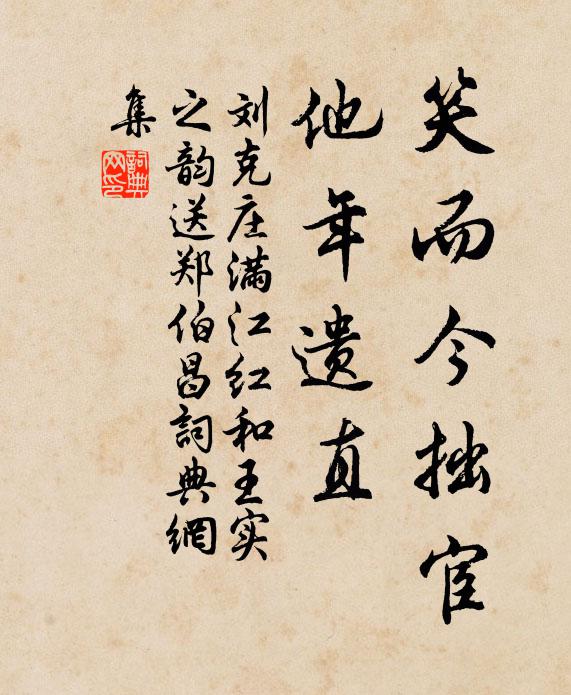 笑而今拙宦
他年遗直
刘克庄满江红和王实
之韵送郑伯昌詞典網
集
詞典網印